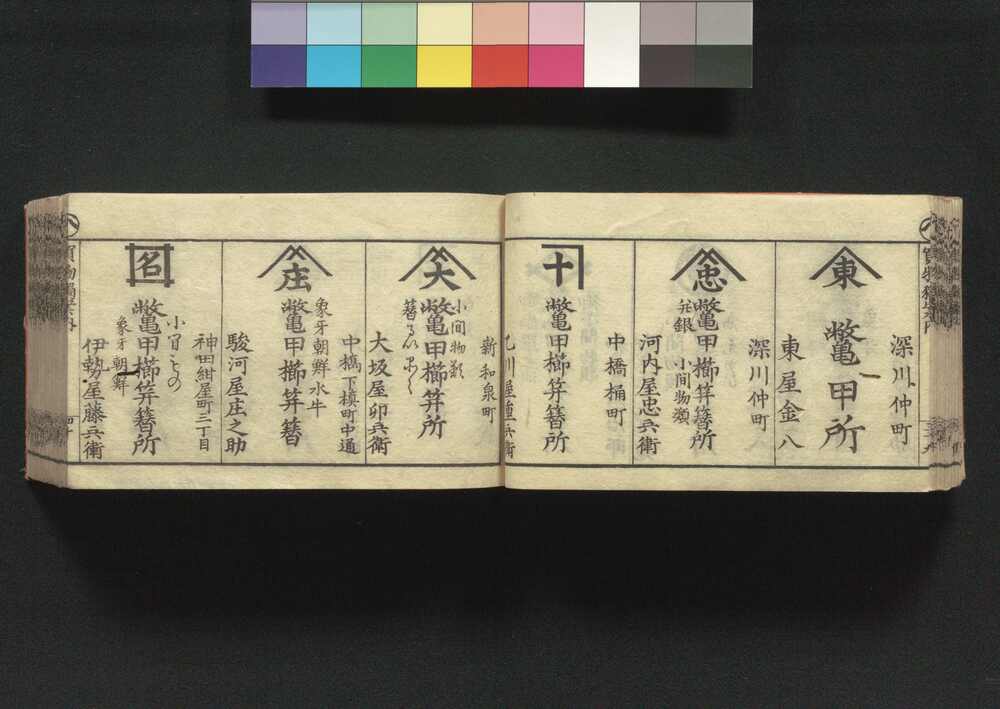 東
深川仲町
鼈甲所
東屋金八
忠
深川仲町
鼈甲櫛笄簪所
并銀
小間物類
河内屋忠兵衛
十
中橋桶町
鼈甲櫛笄簪所
大
新和泉町
小間物類
鼈甲櫛笄所
簪るい品々
大坂屋卯兵衛
庄
中橋下槇町中通
象牙朝鮮水牛
鼈甲櫛笄簪
駿河屋庄之助
名
神田紺屋町三丁目
小間もの
鼈甲櫛笄簪所
象牙朝鮮
伊勢屋藤兵衛